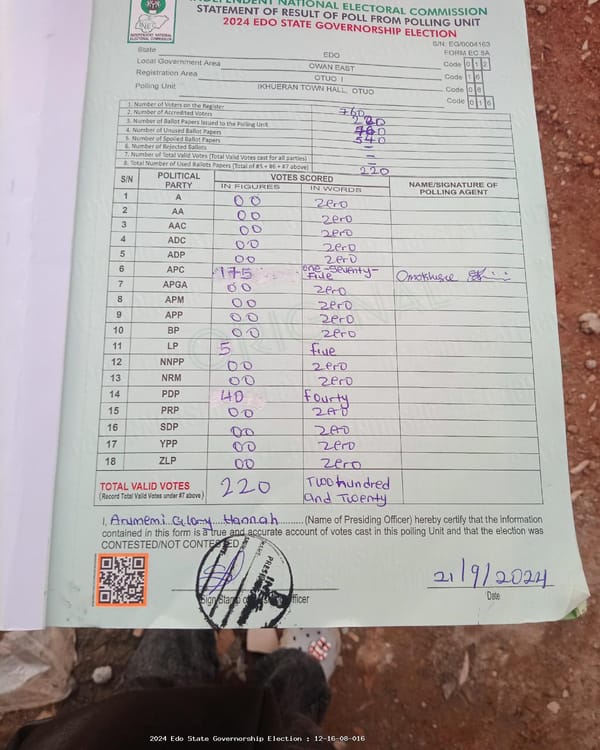 INDEPENDENT NATIONAL ELECTORAL COMMISSION
STATEMENT OF RESULT OF POLL FROM POLLING UNIT
2024 EDO STATE GOVERNORSHIP ELECTION
INEC
INDEPENDENT NATIONAL ELECTORAL COMMISSION
S/N: EG/0004163
FORM EC 8A
State EDO Code 0 1 2
Local Government Area OWAN EAST Code 1 6
Registration Area OTUO I Code 0 8
Polling Unit IKHUERAN TOWN HALL, OTUO Code 0 1 6
1. Number of Voters on the Register 760
2. Number of Accredited Voters 220
3. Number of Ballot Papers Issued to the Polling Unit 760
4. Number of Unused Ballot Papers 540
5. Number of Spoiled Ballot Papers –
6. Number of Rejected Ballots –
7. Number of Total Valid Votes (Total Valid Votes cast for all parties)
8. Total Number of Used Ballots Papers (Total of #5 + #6 + #7 above) 220
S/N POLITICAL PARTY VOTES SCORED NAME/SIGNATURE OF POLLING AGENT
IN FIGURES IN WORDS
1 A 00 Zero
2 AA 00 Zero
3 AAC 00 Zero
4 ADC 00 Zero
5 ADP 00 Zero
6 APC 175 one-seventy-five
7 APGA 00 Zero
8 APM 00 Zero
9 APP 00 Zero
10 BP 00 Zero
11 LP 5 five
12 NNPP 00 Zero
13 NRM 00 Zero
14 PDP 40 fourty
15 PRP 00 Zero
16 SDP 00 Zero
17 YPP 00 Zero
18 ZLP 00 Zero
ORIGINAL
TOTAL VALID VOTES 220 Two hundred and Twenty
(Record Total Valid Votes under #7 above)
I, Arumemi Glory Hannah (Name of Presiding Officer) hereby certify that the information
contained in this form is a true and accurate account of votes cast in this polling Unit and that the election was
CONTESTED/NOT CONTESTED
21/9/2024
Date
2024 Edo State Governorship Election : 12-16-08-016